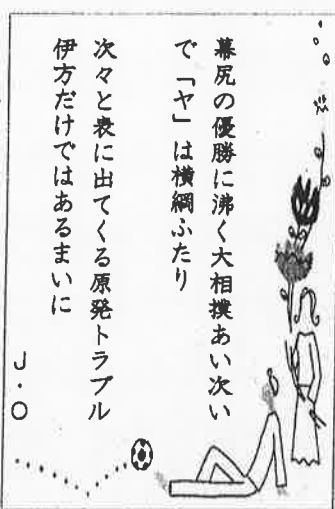 幕尻の優勝に沸く大相撲あい次い
で「ヤ」は横綱ふたり
次々と表に出てくる原発トラブル
伊方だけではあるまいに
J・O